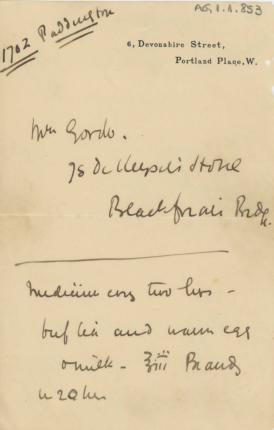 AG.1.1.853
1702 Paddington
6, Devonshire Street,
Portland Place, W.
Mrs Gordo.
75 De Keyser's Hotel
Blackfriars Bdg.
Medicine every two hrs -
beef tea and warm egg
& milk - ℥iii Brandy
in 24 hrs